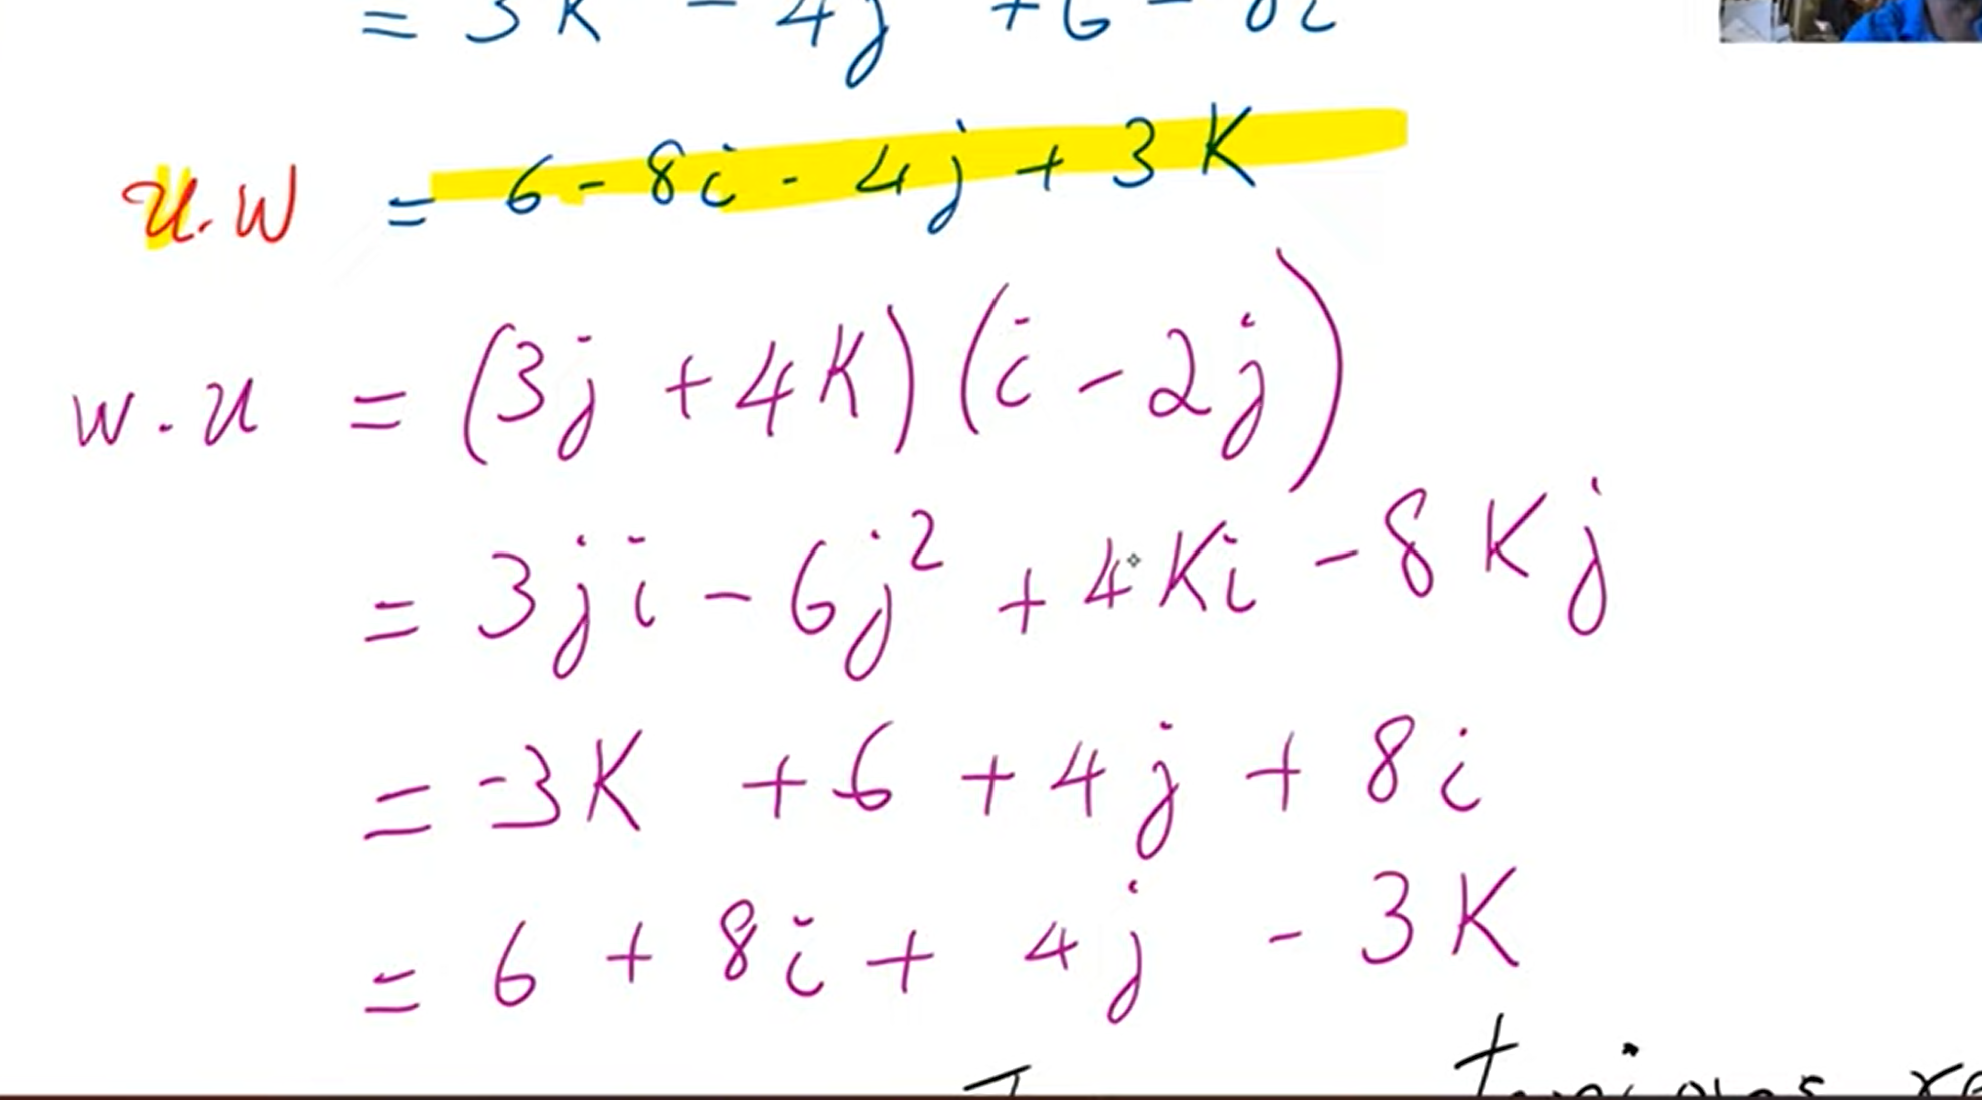 = 3K - 4j + 6 - 8i
u.w = 6 - 8i - 4j + 3K
w.u = (3j + 4K)(i - 2j)
= 3ji - 6j² + 4Ki - 8Kj
= -3K + 6 + 4j + 8i
= 6 + 8i + 4j - 3K